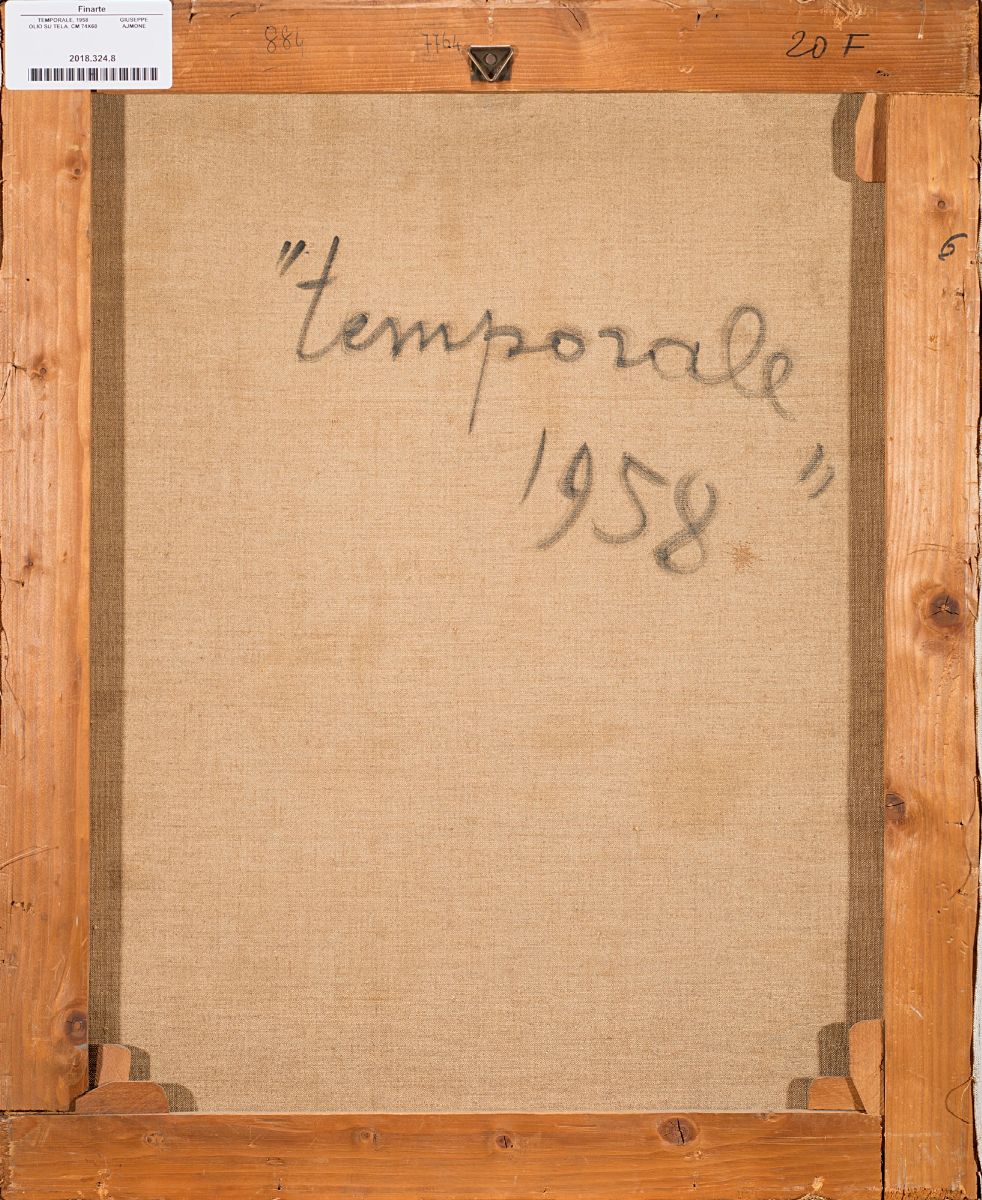 Finarte
TEMPORALE, 1958 GIUSEPPE
OLIO SU TELA, CM 74X60 AJMONE
2018.324.8
884 7764 20 F
6
"temporale"
1958